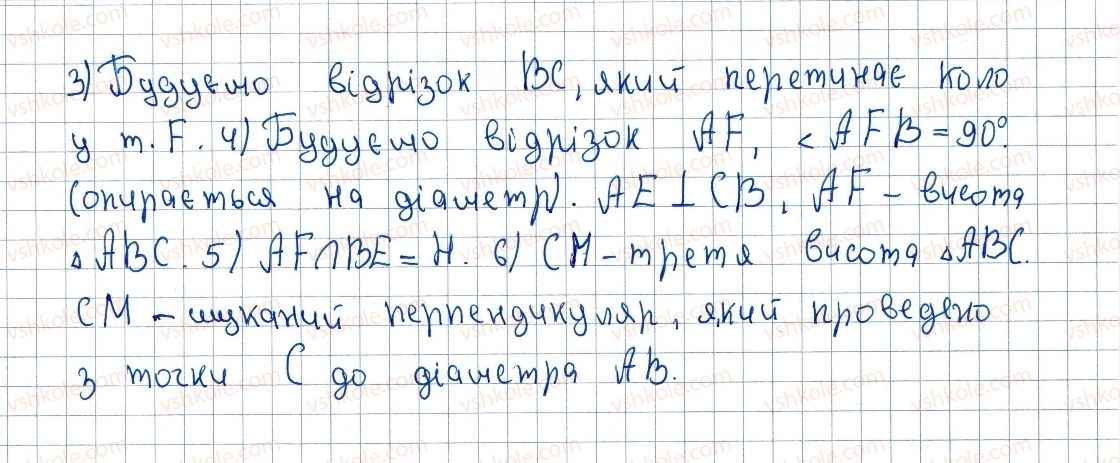 3) Будуємо відрізок BC, який перетинає коло
у т. F. 4) Будуємо відрізок AF, < AFB = 90°.
(опирається на діаметр). AE ⊥ CB, AF – висота
△ ABC. 5) AF ∩ BE = H. 6) CM – третя висота △ ABC.
CM – шуканий перпендикуляр, який проведено
з точки C до діаметра AB.